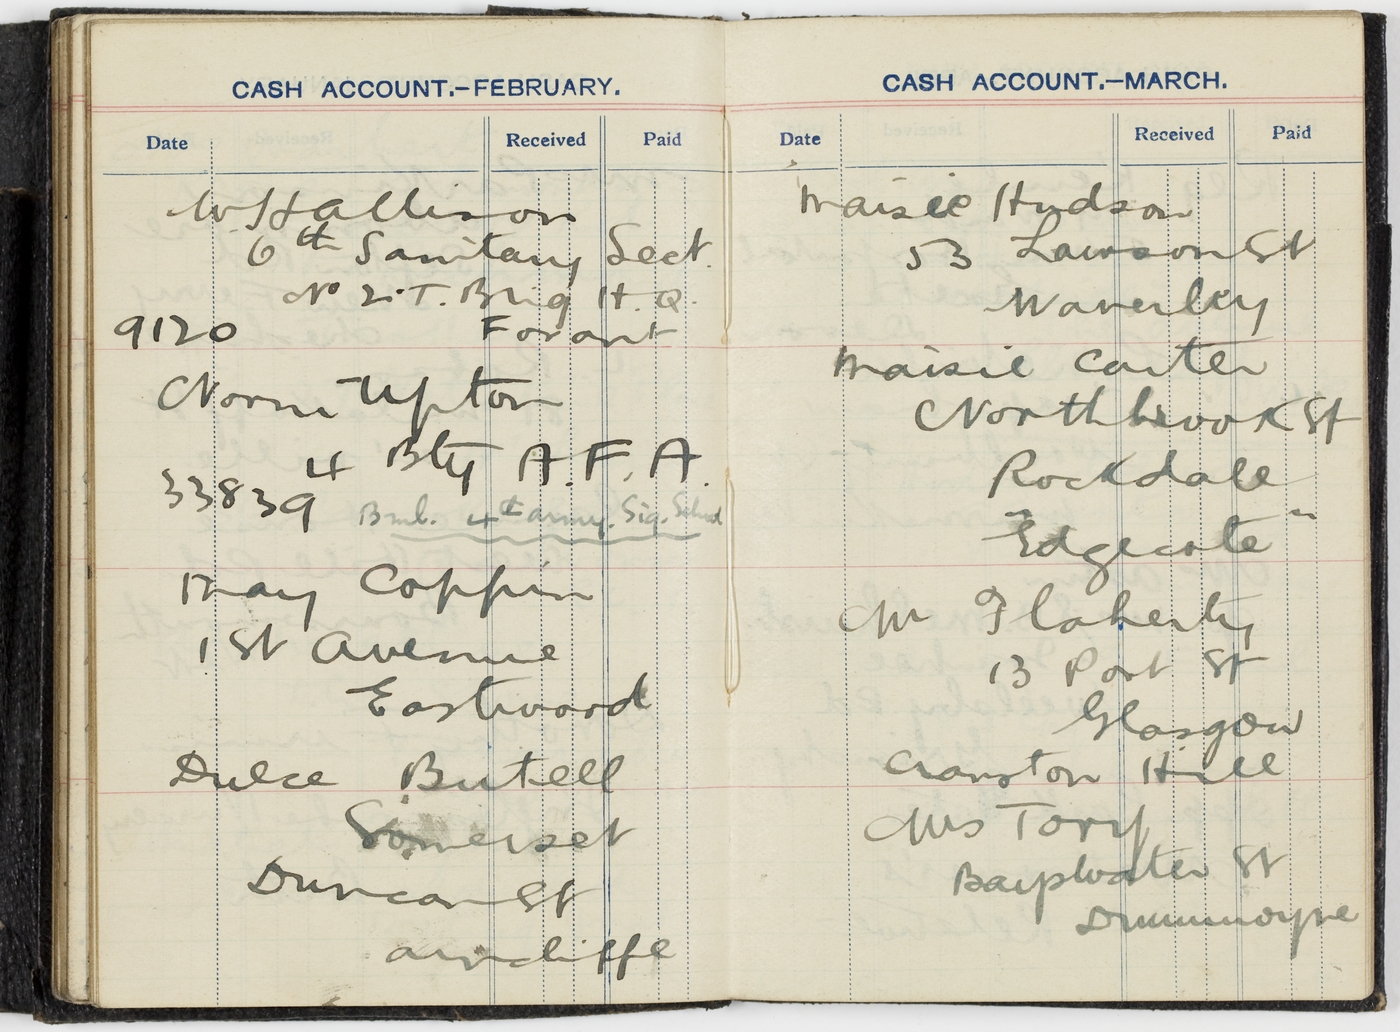 CASH ACCOUNT.—FEBRUARY.
Date Received Paid
W Hallison
6th Sanitary Sect.
No 2. T. Brig H.Q.
9120 Fovant
Norm Upton
4 Bty A.F.A.
33839 Bmb. 4th army. Sig. School
May Coppin
1 St Avenue
Eastwood
Dulce Butell
Somerset
Duncan St
arncliffe
CASH ACCOUNT.—MARCH.
Date Received Paid
Maisie Hudson
53 Lawson St
Waverley
Maisie Carter
Northbrook St
Rockdale
"Edgecote"
Mr Flaherty
13 Port St
Glasgow
Cranston Hill
Mrs Tory
Bayswater St
Drummoyne